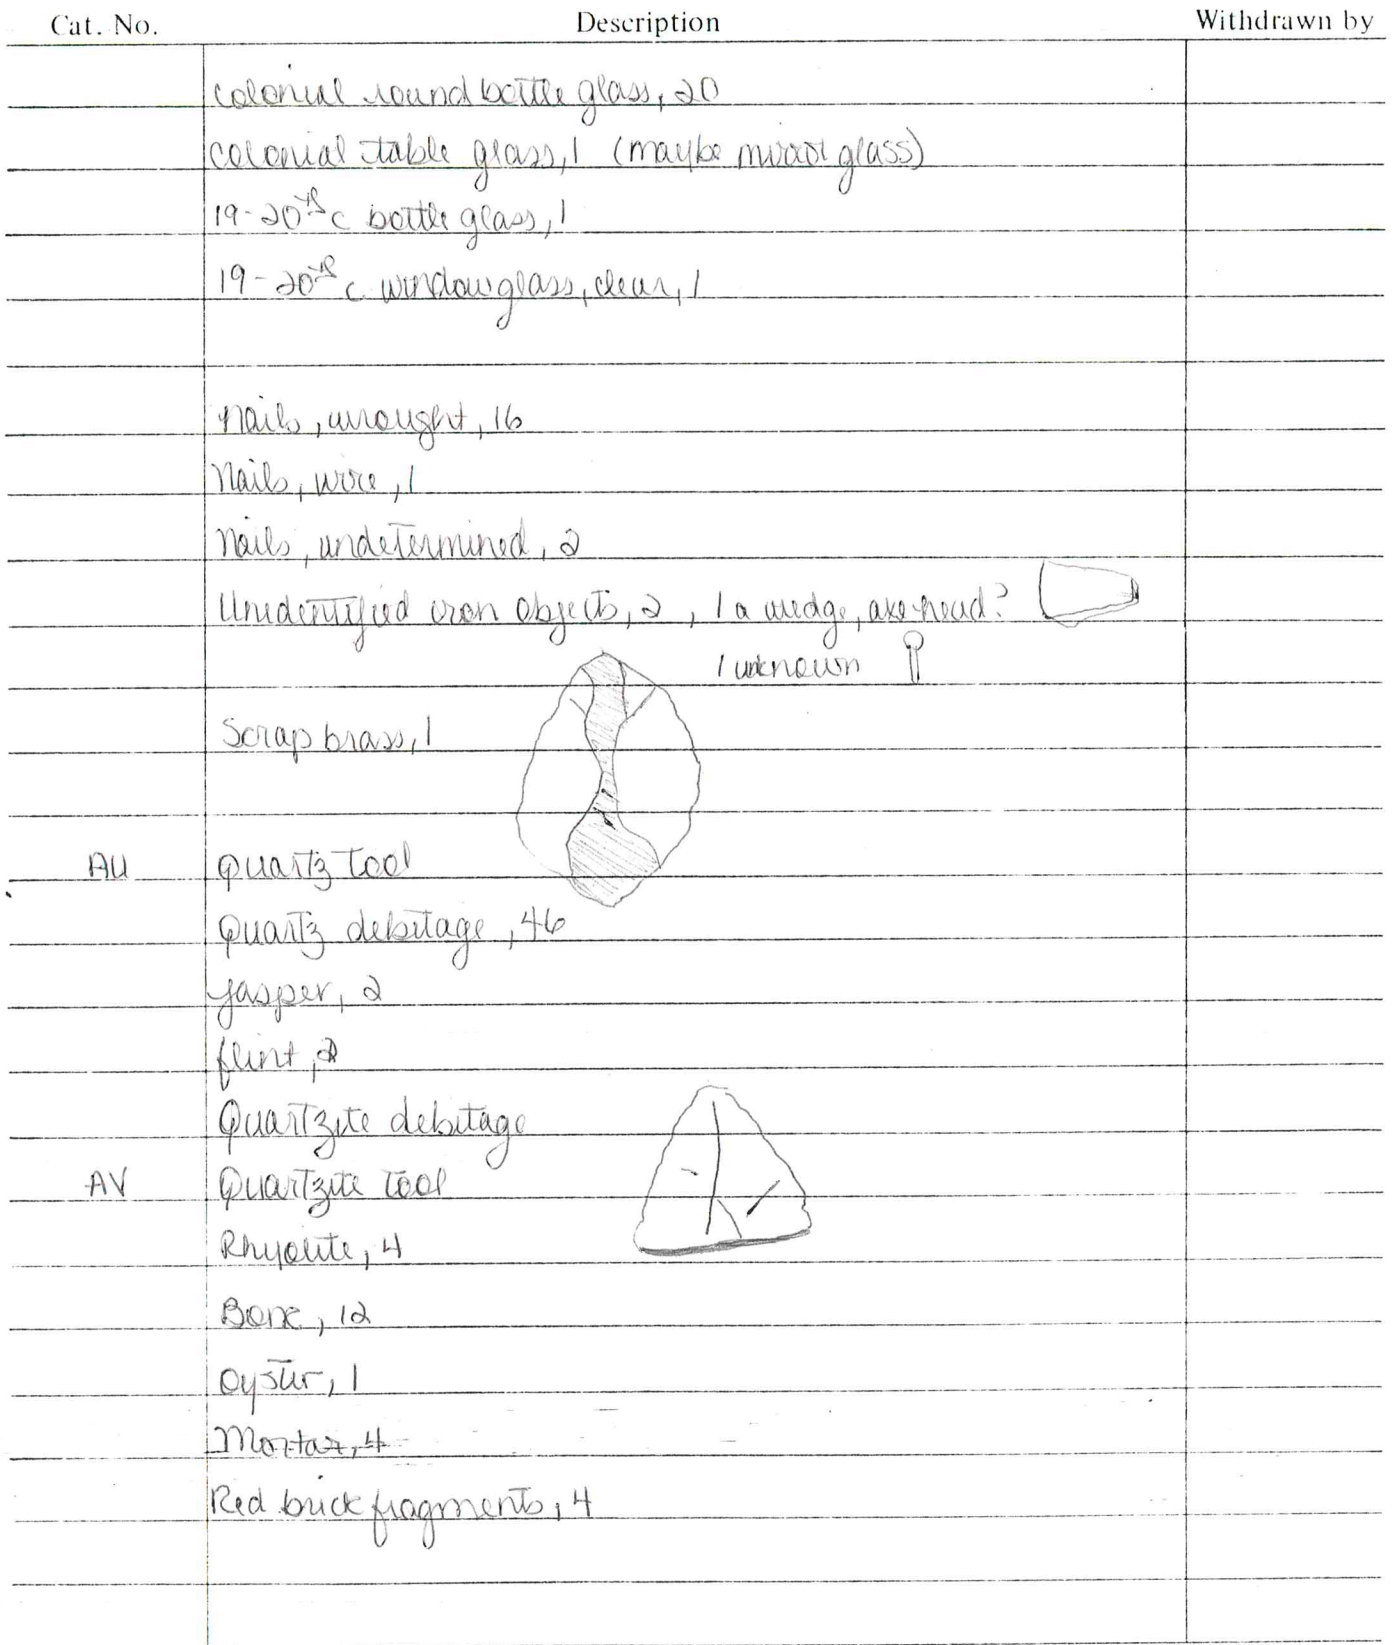 Cat. No. Description Withdrawn by
colonial round bottle glass, 20
colonial table glass, 1 (maybe mirror glass)
19-20th c bottle glass, 1
19-20th c window glass, clear, 1
nails, wrought, 16
Nails, wire, 1
Nails, undetermined, 2
Unidentified iron objects, 2, 1 a wedge, axe head?
1 unknown
Scrap brass, 1
AU Quartz tool
Quartz debitage, 46
jasper, 2
flint, 2
Quartzite debitage
AV Quartzite tool
Rhyolite, 4
Bone, 12
oyster, 1
Mortar, 4
Red brick fragments, 4